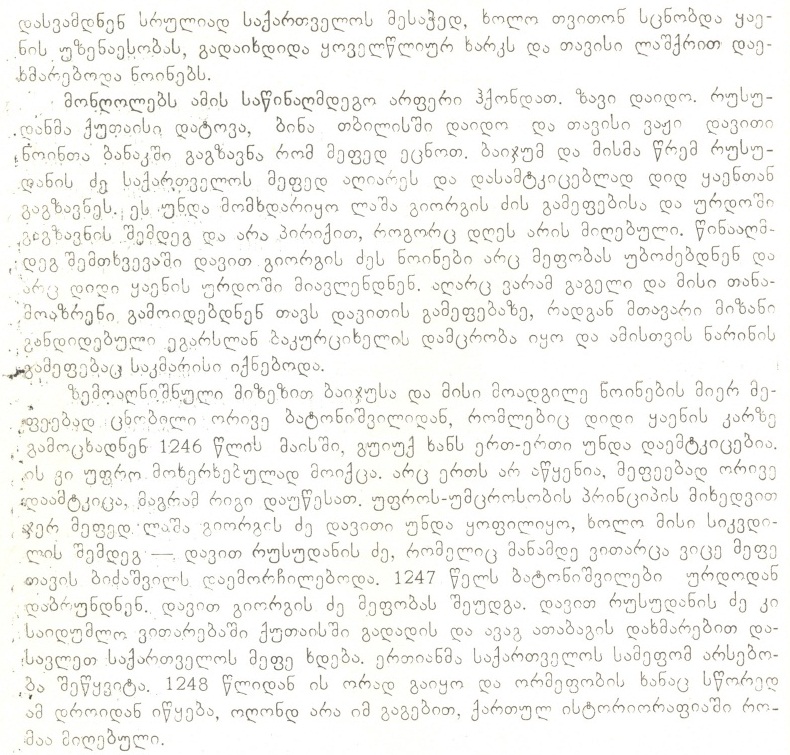 დასვამდნენ სრულიად საქართველოს მესაჭედ, ხოლო თვითონ სცნობდა ყაე-
ნის უზენაესობას, გადაიხდიდა ყოველწლიურ ხარკს და თავისი ლაშქრით დაე-
ხმარებოდა ნოინებს.
მონღოლებს ამის საწინაღმდეგო არფერი ჰქონდათ. ზავი დაიდო. რუსუ-
დანმა ქუთაისი დატოვა, ბინა თბილისში დაიდო და თავისი ვაჟი დავითი
ნოინთა ბანაკში გაგზავნა რომ მეფედ ეცნოთ. ბაიჯუმ და მისმა წრემ რუსუ-
დანის ძე საქართველოს მეფედ აღიარეს და დასამტკიცებლად დიდ ყაენთან
გაგზავნეს. ეს უნდა მომხდარიყო ლაშა გიორგის ძის გამეფებისა და ურდოში
გაგზავნის შემდეგ და არა პირიქით, როგორც დღეს არის მიღებული. წინააღმ-
დეგ შემთხვევაში დავით გიორგის ძეს ნოინები არც მეფობას უბოძებდნენ და
არც დიდი ყაენის ურდოში მიავლენდნენ. აღარც ვარამ გაგელი და მისი თანა-
მოაზრენი გამოიდებდნენ თავს დავითის გამეფებაზე, რადგან მთავარი მიზანი
განდიდებული ეგარსლან ბაკურციხელის დამცრობა იყო და ამისთვის ნარინის
გამეფებაც საკმარისი იქნებოდა.
ზემოაღნიშნული მიზეზით ბაიჯუსა და მისი მოადგილე ნოინების მიერ მე-
ფეებად ცნობილი ორივე ბატონიშვილიდან, რომლებიც დიდი ყაენის კარზე
გამოცხადნენ 1246 წლის მაისში, გუიუქ ხანს ერთ-ერთი უნდა დაემტკიცებია.
ის კი უფრო მოხერხებულად მოიქცა. არც ერთს არ აწყენია, მეფეებად ორივე
დაამტკიცა, მაგრამ რიგი დაუწესათ. უფროს-უმცროსობის პრინციპის მიხედვით
ჯერ მეფედ ლაშა გიორგის ძე დავითი უნდა ყოფილიყო, ხოლო მისი სიკვდი-
ლის შემდეგ — დავით რუსუდანის ძე, რომელიც მანამდე ვითარცა ვიცე მეფე
თავის ბიძაშვილს დაემორჩილებოდა. 1247 წელს ბატონიშვილები ურდოდან
დაბრუნდნენ. დავით გიორგის ძე მეფობას შეუდგა. დავით რუსუდანის ძე კი
საიდუმლო ვითარებაში ქუთაისში გადადის და ავაგ ათაბაგის დახმარებით და-
სავლეთ საქართველოს მეფე ხდება. ერთიანმა საქართველოს სამეფომ არსებო-
ბა შეწყვიტა. 1248 წლიდან ის ორად გაიყო და ორმეფობის ხანაც სწორედ
ამ დროიდან იწყება, ოღონდ არა იმ გაგებით, ქართულ ისტორიორაფიაში რო-
მაა მიღებული.